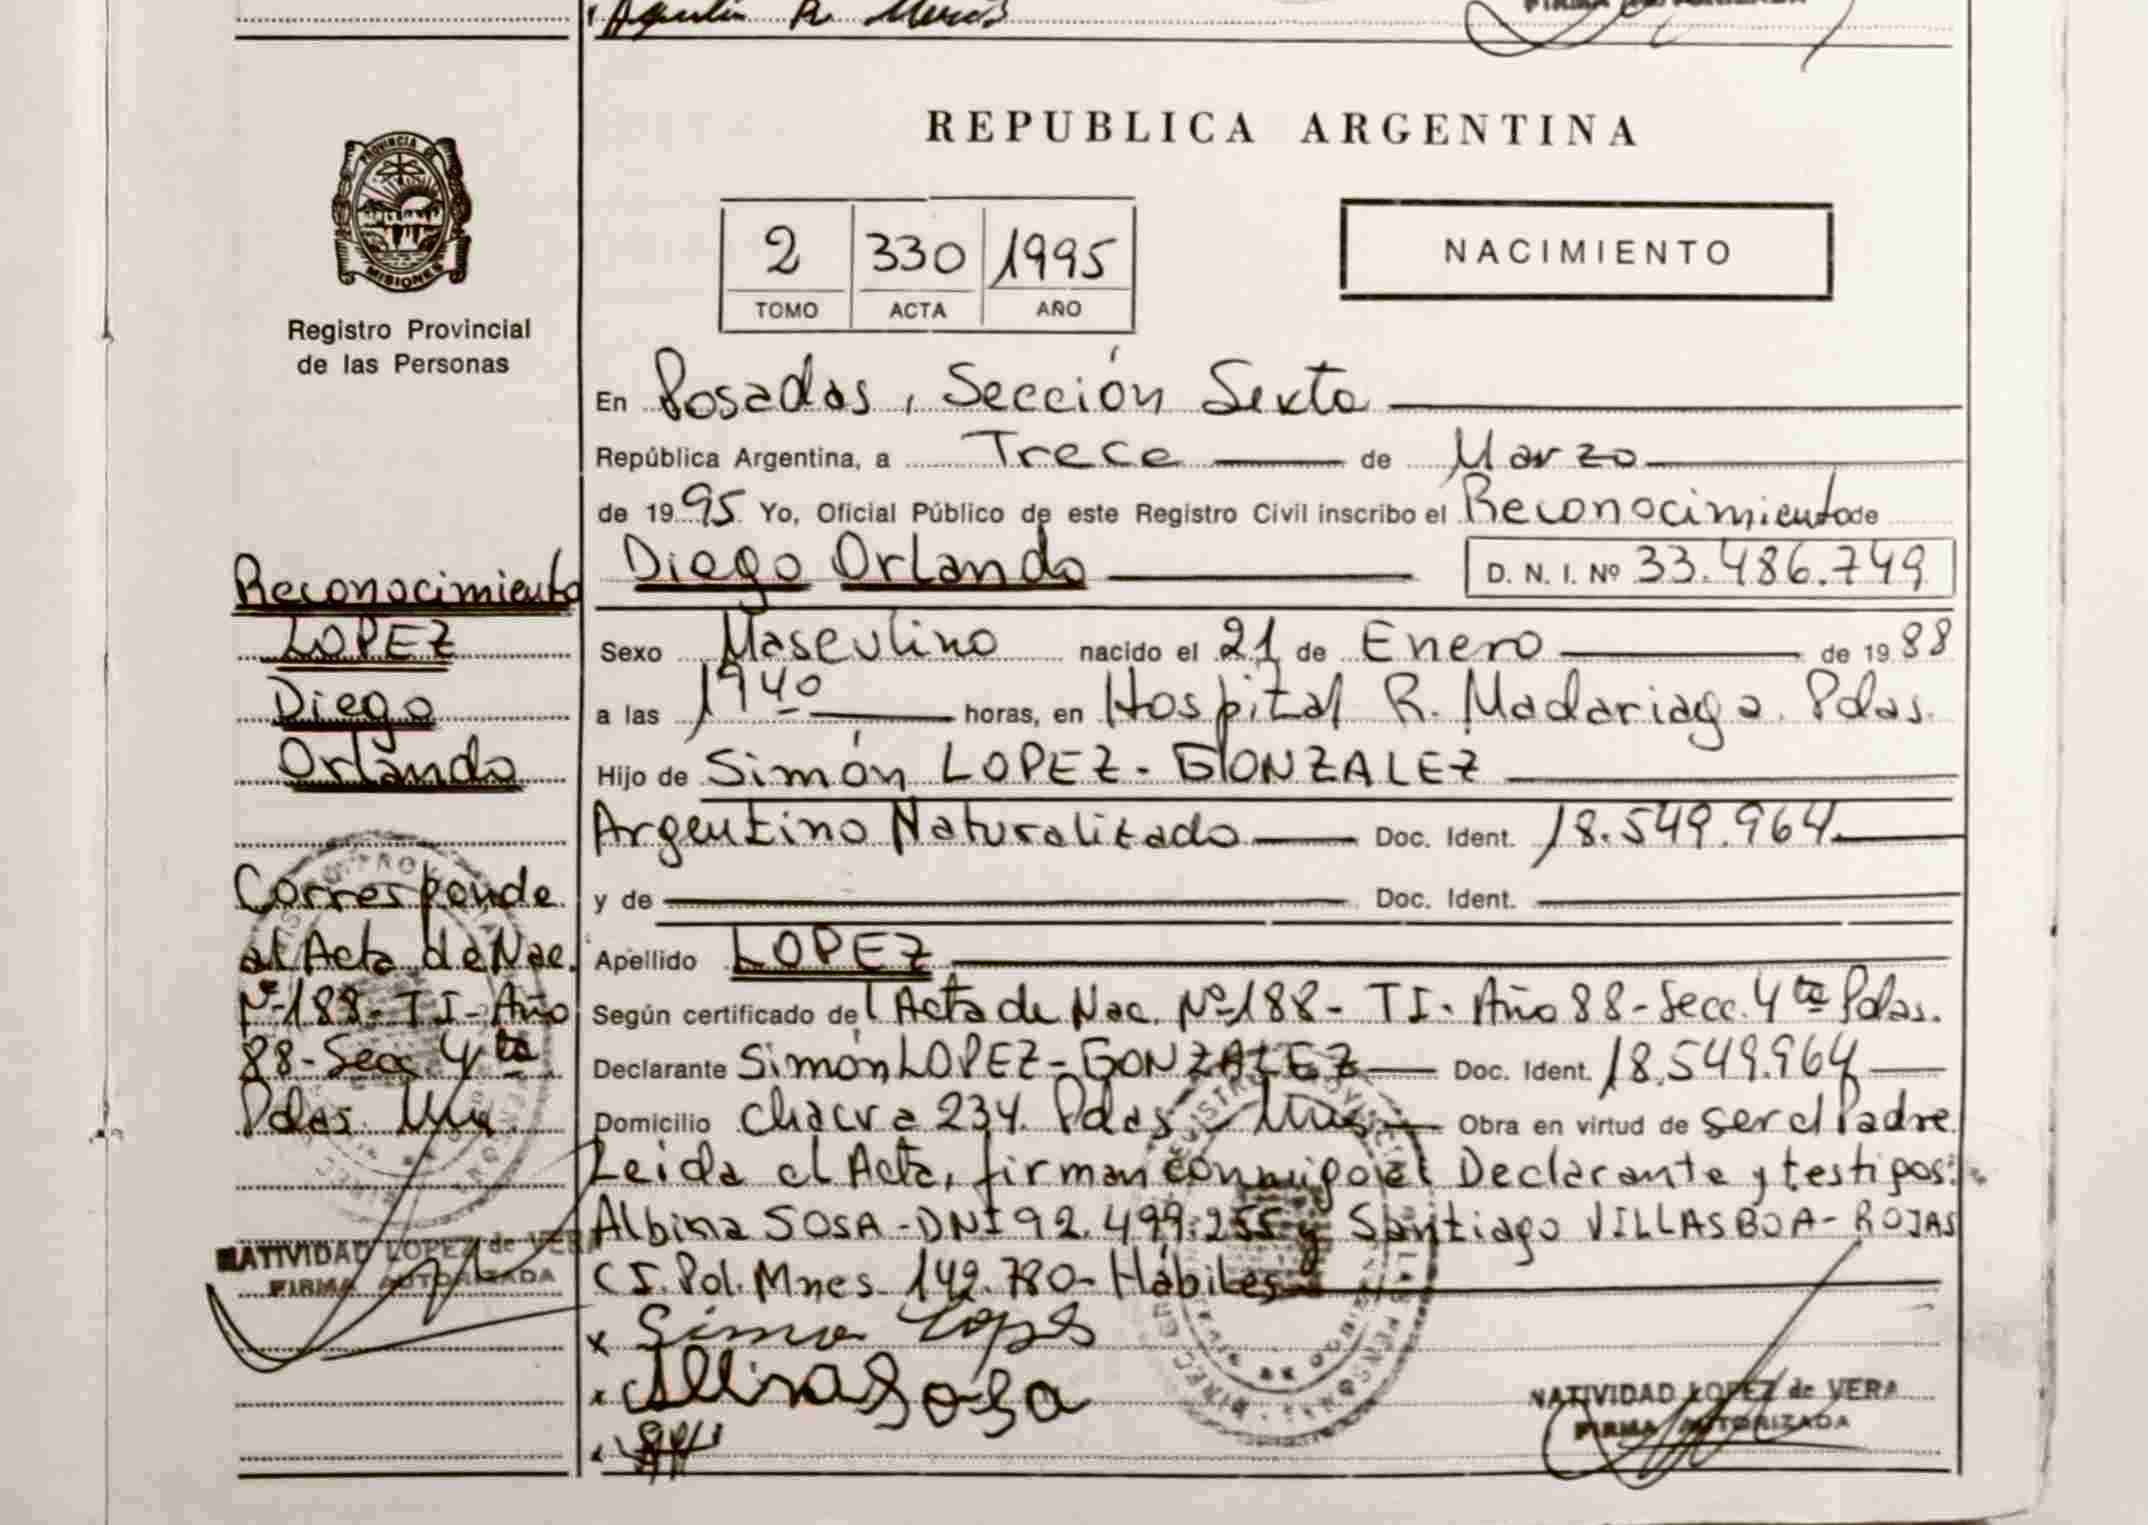 Agustin R.
FIRMA AUTORIZADA
PROVINCIA DE
MISIONES
Registro Provincial
de las Personas
REPUBLICA ARGENTINA
2 330 1995
TOMO ACTA AÑO
NACIMIENTO
En Posadas, Sección Sexta
República Argentina, a Trece de Marzo
de 1995 Yo, Oficial Público de este Registro Civil inscribo el Reconocimiento de
Diego Orlando D. N. I. Nº 33.486.749
Sexo Masculino nacido el 21 de Enero de 1988
a las 1940 horas, en Hospital R. Madariaga. Pdas.
Hijo de Simón LOPEZ-GONZALEZ
Argentino Naturalizado Doc. Ident. 18.549.964
y de Doc. Ident.
Apellido LOPEZ
Según certificado del Acta de Nac. Nº188- TI- Año 88-Secc. 4ta Pdas.
Declarante Simón LOPEZ-GONZALEZ Doc. Ident. 18.549.964
Domicilio Chacra 234. Pdas. Mnes Obra en virtud de ser el Padre
Leida el Acta, firman conmigo el Declarante y testigos:
Albina SOSA-DNI 92.499.255 y Santiago VILLASBOA-ROJAS
CI. Pol. Mnes 142.780- Hábiles
x Simon Lopes
x Albina Sosa
x
NATIVIDAD LOPEZ de VERA
FIRMA AUTORIZADA
Reconocimiento
LOPEZ
Diego
Orlando
Corresponde
al Acta de Nac.
Nº188- TI- Año
88-Secc. 4ta
Pdas. Mnes
NATIVIDAD LOPEZ de VERA
FIRMA AUTORIZADA